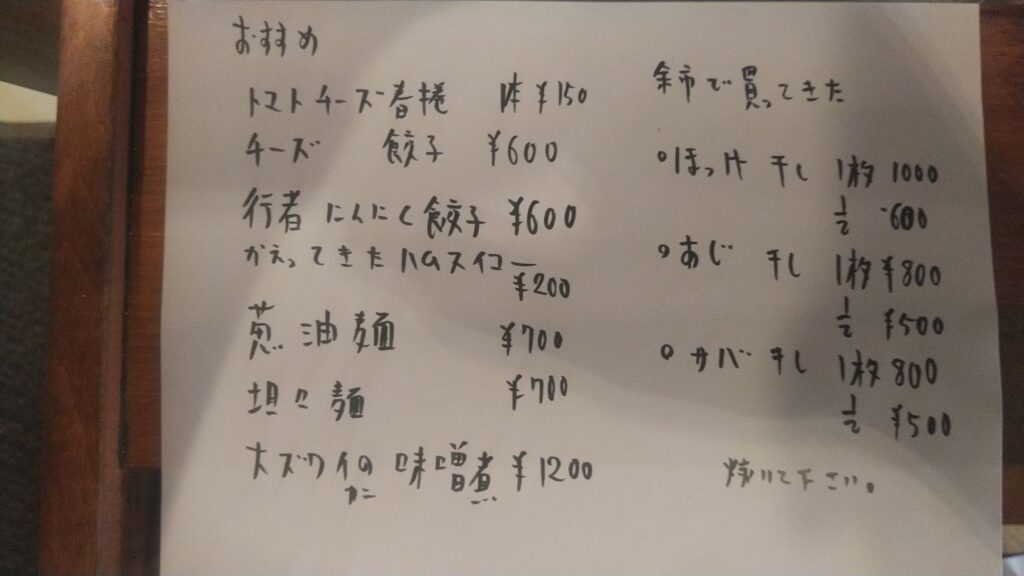 おすすめ
トマトチーズ春捲 1本 ¥150
チーズ 餃子 ¥600
行者にんにく餃子 ¥600
かえってきたハムスイコー
¥200
葱油麺 ¥700
坦々麺 ¥700
大ズワイの味噌煮 ¥1200
カニ
余市で買ってきた
°ほっけ 干し 1枚 1000
1/2 600
°あじ 干し 1枚 ¥800
1/2 ¥500
°サバ 干し 1枚 800
1/2 ¥500
焼いて下さい。